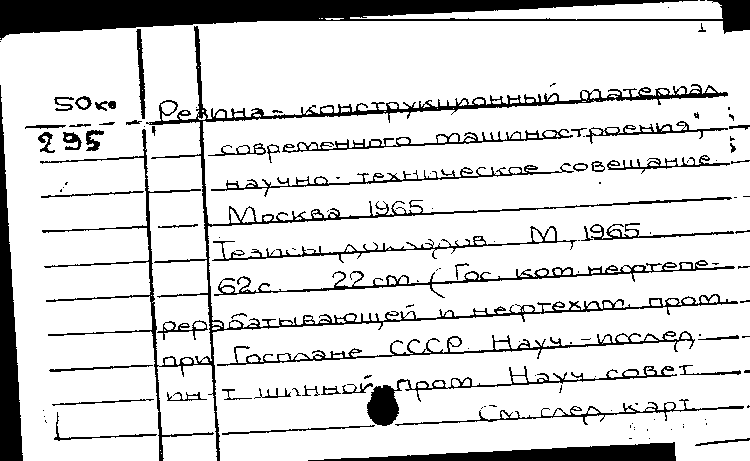 50ко
295
Резина - конструкционный материал
современного машиностроения",
научно-техническое совещание.
Москва. 1965.
Тезисы докладов. М., 1965.
62с. 22 см. (Гос. ком. нефтепе-
рерабатывающей и нефтехим. пром.
при Госплане СССР. Науч.-исслед.
ин-т шинной пром. Науч. совет
См. след. карт.